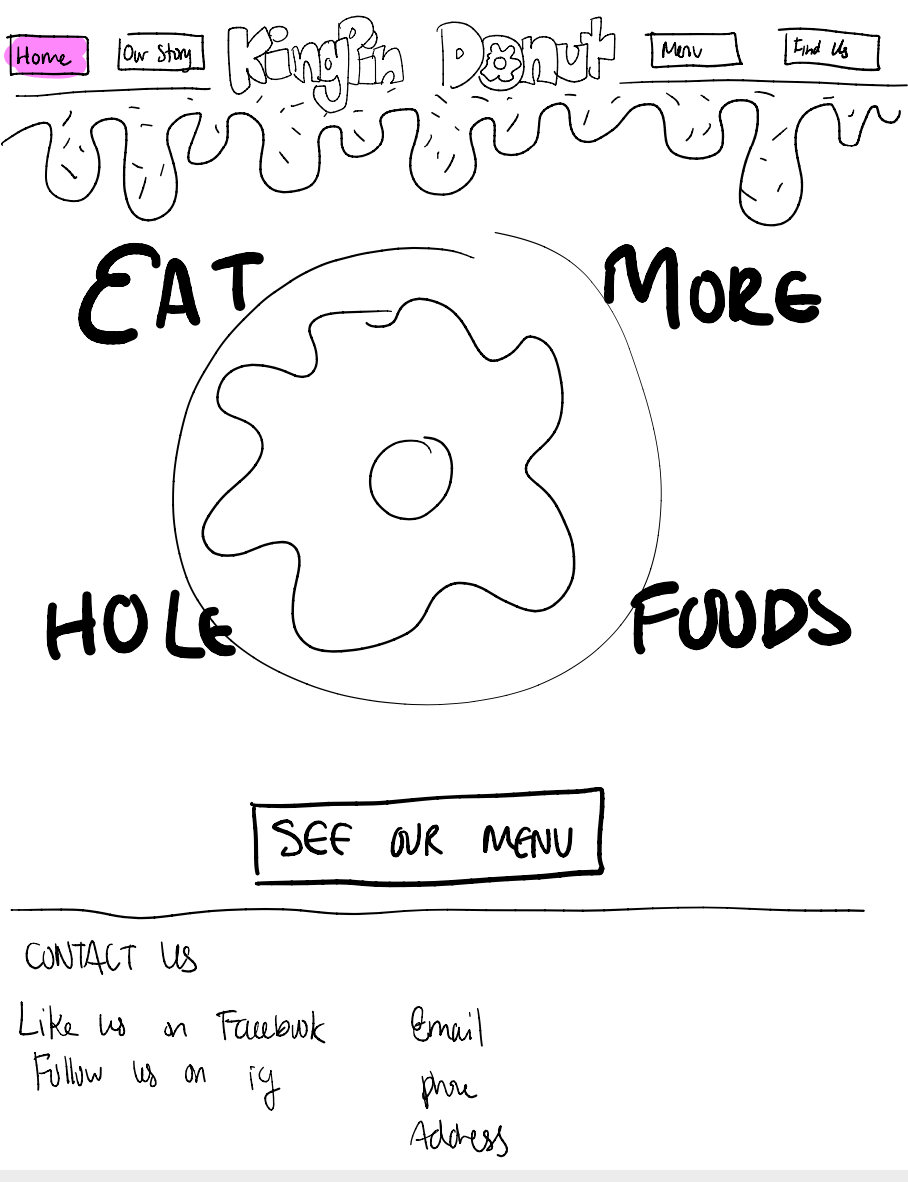 Home Our Story KingPin Donut Menu Find Us
EAT MORE
HOLE FOODS
SEE OUR MENU
CONTACT US
Like us on Facebook Email
Follow us on ig phone
Address